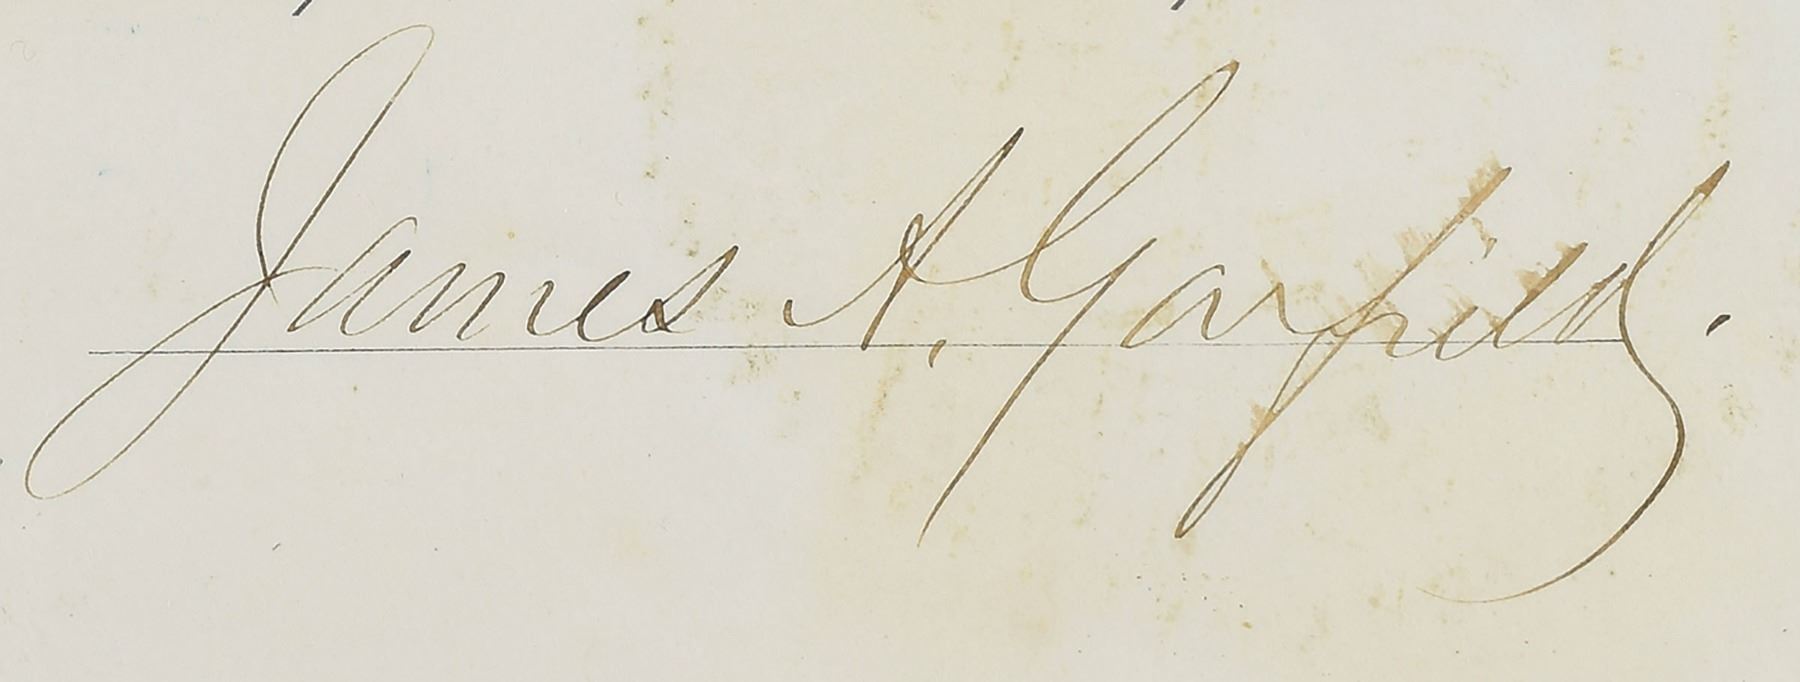 James A. Garfield.